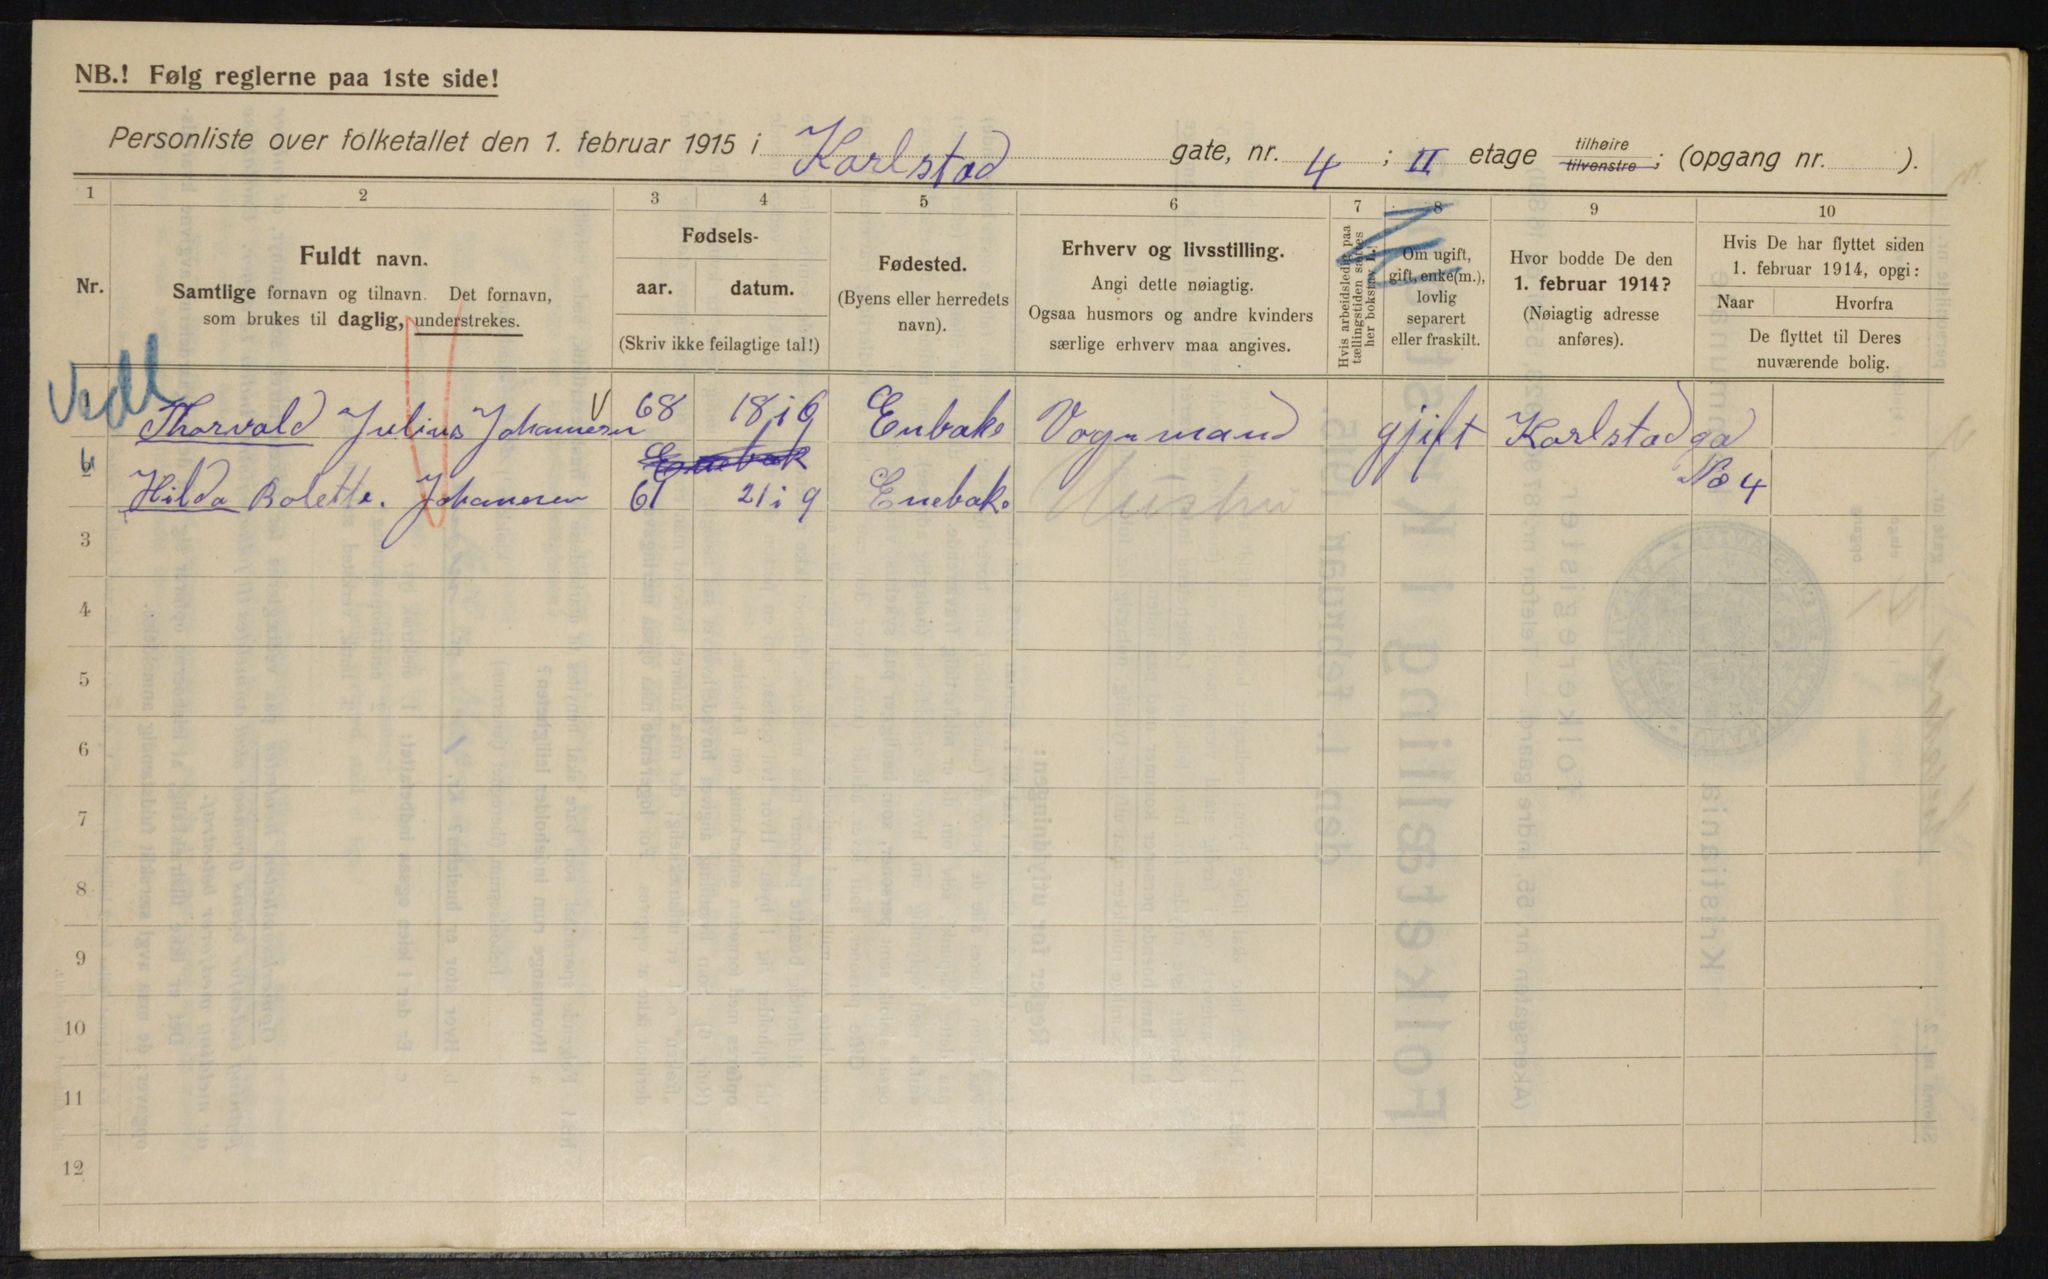 NB.! Følg reglerne paa 1ste side!
Personliste over folketallet den 1. februar 1915 i Karlstad gate, nr. 4 ; II etage tilhøire tilvenstre; (opgang nr. ).
1 2 3 4 5 6 7 8 9 10
Nr.
Fuldt navn.
Samtlige fornavn og tilnavn. Det fornavn,
som brukes til daglig, understrekes.
Fødsels-
aar. datum.
(Skriv ikke feilagtige tal!)
Fødested.
(Byens eller herredets
navn).
Erhverv og livsstilling.
Angi dette nøiagtig.
Ogsaa husmors og andre kvinders
særlige erhverv maa angives.
Hvis arbeidsledig paa
tællingstiden sættes
her bokstav L.
Om ugift,
gift, enke(m.),
lovlig
separert
eller fraskilt.
Hvor bodde De den
1. februar 1914?
(Nøiagtig adresse
anføres).
Hvis De har flyttet siden
1. februar 1914, opgi:
Naar Hvorfra
De flyttet til Deres
nuværende bolig.
Thorvald Julius Johannesen 68 18 i 9 Enbak Vognmand gjift Karlstad ga
Enebak
Hilda Bolette. Johannesen 61 21 i 9 Enebak. No 4
3
4
5
6
7
8
9
10
11
12